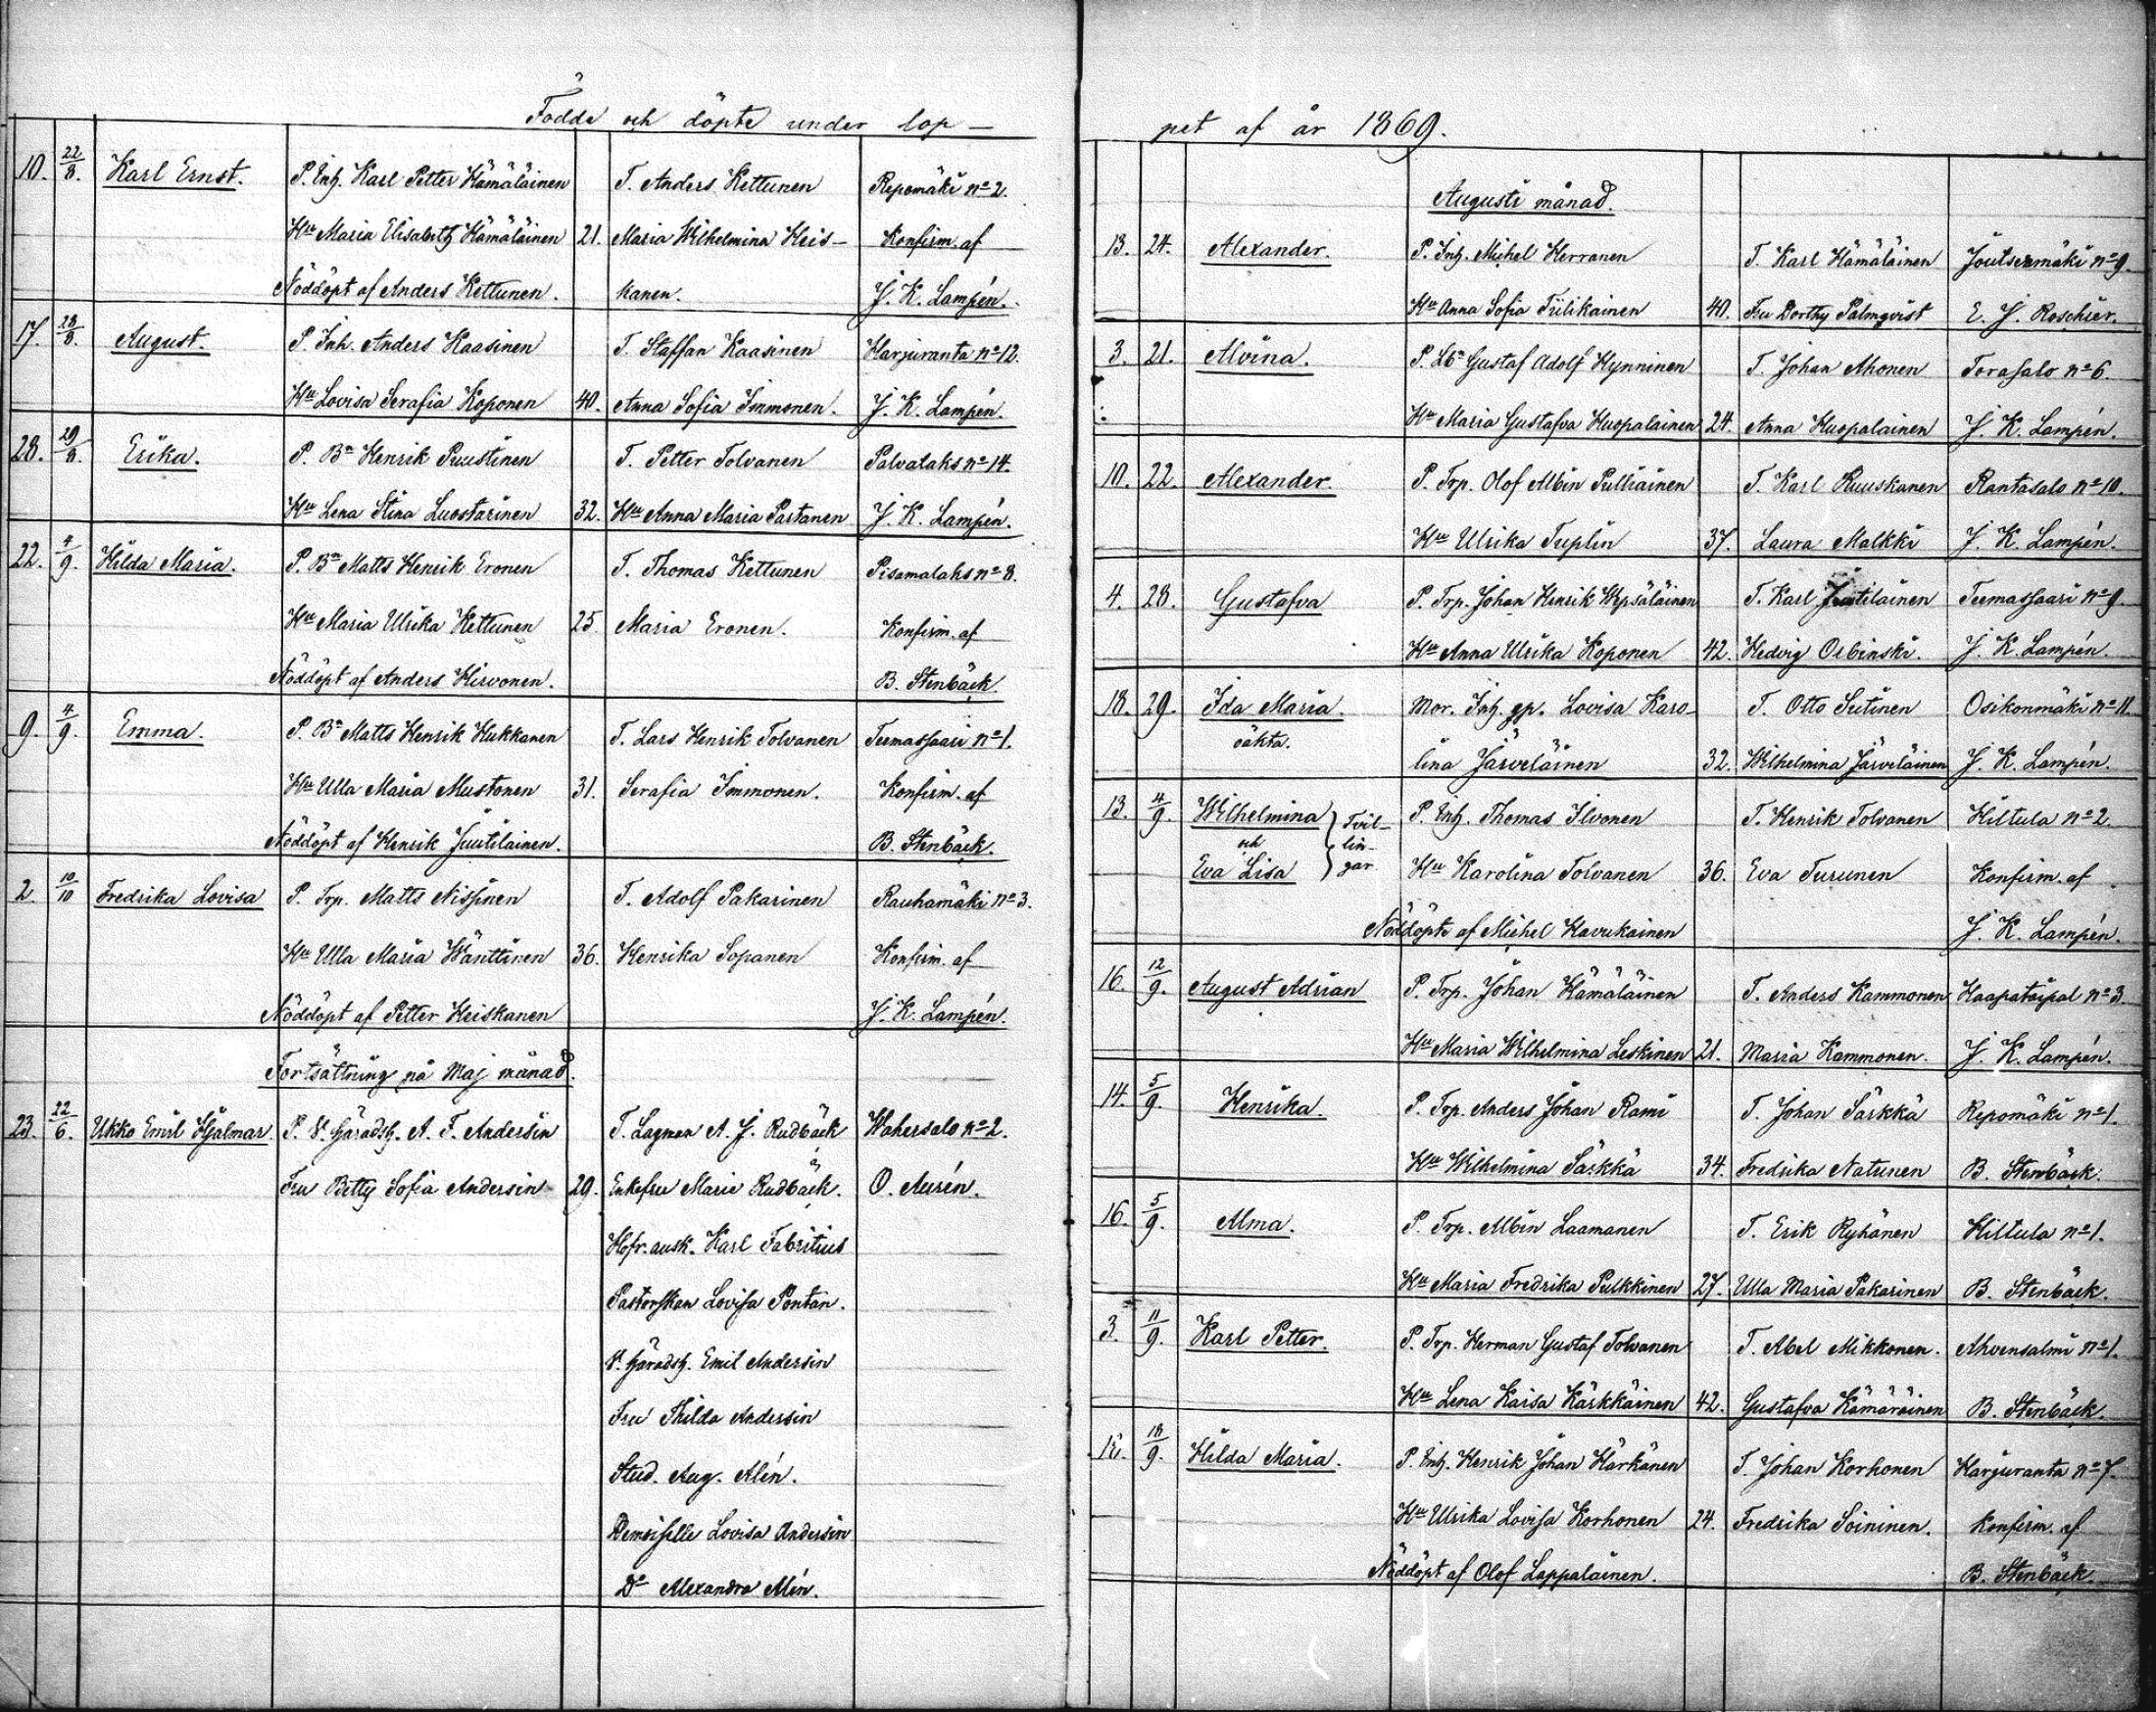 Födde och döpte under lop-
10. 22/8. Karl Ernst. P. Inh. Karl Petter Hämäläinen T. Anders Kettunen Repomäki No 2.
Hu Maria Elisabeth Hämäläinen 21. Maria Wilhelmina Heis- Konfirm. af
Nöddöpt af Anders Kettunen. kanen. J. K. Lampén.
17. 28/8. August. P. Inh. Anders Kaasinen T. Staffan Kaasinen Harjuranta No 12.
Hu Lovisa Serafia Koponen 40. Anna Sofia Immonen. J. K. Lampén.
28. 29/8. Erika. P. Bn Henrik Puustinen T. Petter Tolvanen Palvalaks No 14.
Hu Lena Stina Luostarinen 32. Hu Anna Maria Partanen J. K. Lampén.
22. 4/9. Hilda Maria. P. Bn Matts Henrik Eronen T. Thomas Kettunen Pisamalaks No 8.
Hu Maria Ulrika Kettunen 25. Maria Eronen. Konfirm. af
Nöddöpt af Anders Hirvonen. B. Stenbäck.
9. 4/9. Emma. P. Bn Matts Henrik Hukkanen T. Lars Henrik Tolvanen Teemassaari No 1.
Hu Ulla Maria Mustonen 31. Serafia Immonen. Konfirm. af
Nöddöpt af Henrik Juutilainen. B. Stenbäck.
2. 10/10 Fredrika Lovisa P. Trp. Matts Nissinen T. Adolf Pakarinen Rauhamäki No 3.
Hu Ulla Maria Wänttinen 36. Henrika Sopanen Konfirm. af
Nöddöpt af Petter Heiskanen J. K. Lampén.
Fortsättning på Maj månad.
23. 22/6. Ukko Emil Hjalmar. P. V. Häradsh. A. F. Andersin T. Lagman A. J. Rudbäck Wahersalo No 2.
Fru Betty Sofia Andersin 29. Enkefru Maria Rudbäck. O. Aurén.
Hofr. ausk. Karl Fabritius
Pastorskan Lovisa Pontan.
V. Häradsh. Emil Andersin
Fru Thilda Andersin
Stud. Aug. Alén.
Demoiselle Lovisa Andersin
Do Alexandra Alén.
pet af år 1869.
Augusti månad.
13. 24. Alexander. P. Inh. Michel Herranen T. Karl Hämäläinen Joutsenmäki No 9.
Hu Anna Sofia Tiilikainen 40. Fru Dorthy Palmqvist E. J. Roschier.
3. 21. Alvina. P. Lbn Gustaf Adolf Hynninen T. Johan Ahonen Torasalo No 6.
Hu Maria Gustafva Huopalainen 24. Anna Huopalainen J. K. Lampén.
10. 22. Alexander. P. Trp. Olof Albin Pulliainen T. Karl Ruuskanen Rantasalo No 10.
Hu Ulrika Tuplin 37. Laura Malkki J. K. Lampén.
4. 28. Gustafva P. Trp. Johan Henrik Wepsäläinen T. Karl Juutilainen Teemassaari No 9.
Hu Anna Ulrika Koponen 42. Hedvig Orbinski. J. K. Lampén.
18. 29. Ida Maria. Mor. Inh. gp. Lovisa Karo- T. Otto Sutinen Osikonmäki No 11.
oäkta. lina Järveläinen 32. Wilhelmina Järveläinen J. K. Lampén.
13. 4/9. Wilhelmina Tvil- P. Inh. Thomas Ilvonen T. Henrik Tolvanen Hiltula No 2.
och lin-
Eva Lisa gar Hu Karolina Tolvanen 36. Eva Turunen Konfirm. af
Nöddöpte af Michel Havukainen J. K. Lampén.
16. 12/9. August Adrian P. Trp. Johan Hämäläinen T. Anders Kammonen Haapataipal No 3
Hu Maria Wilhelmina Leskinen 21. Maria Kammonen. J. K. Lampén.
14. 5/9. Henrika. P. Trp. Anders Johan Rami T. Johan Särkkä Repomäki No 1.
Hu Wilhelmina Särkkä 34. Fredrika Natunen B. Stenbäck.
16. 5/9. Alma. P. Trp. Albin Laamanen T. Erik Ryhänen Hiltula No 1.
Hu Maria Fredrika Pulkkinen 27. Ulla Maria Pakarinen B. Stenbäck.
3. 11/9. Karl Petter. P. Trp. Herman Gustaf Tolvanen T. Abel Mikkonen. Ahvensalmi No 1.
Hu Lena Kaisa Kärkkäinen 42. Gustafva Kämäräinen B. Stenbäck.
18/9. Hilda Maria. P. Inh. Henrik Johan Härkänen T. Johan Korhonen Harjuranta No 7.
Hu Ulrika Lovisa Korhonen 24. Fredrika Soininen. Konfirm. af
Nöddöpt af Olof Lappalainen. B. Stenbäck.